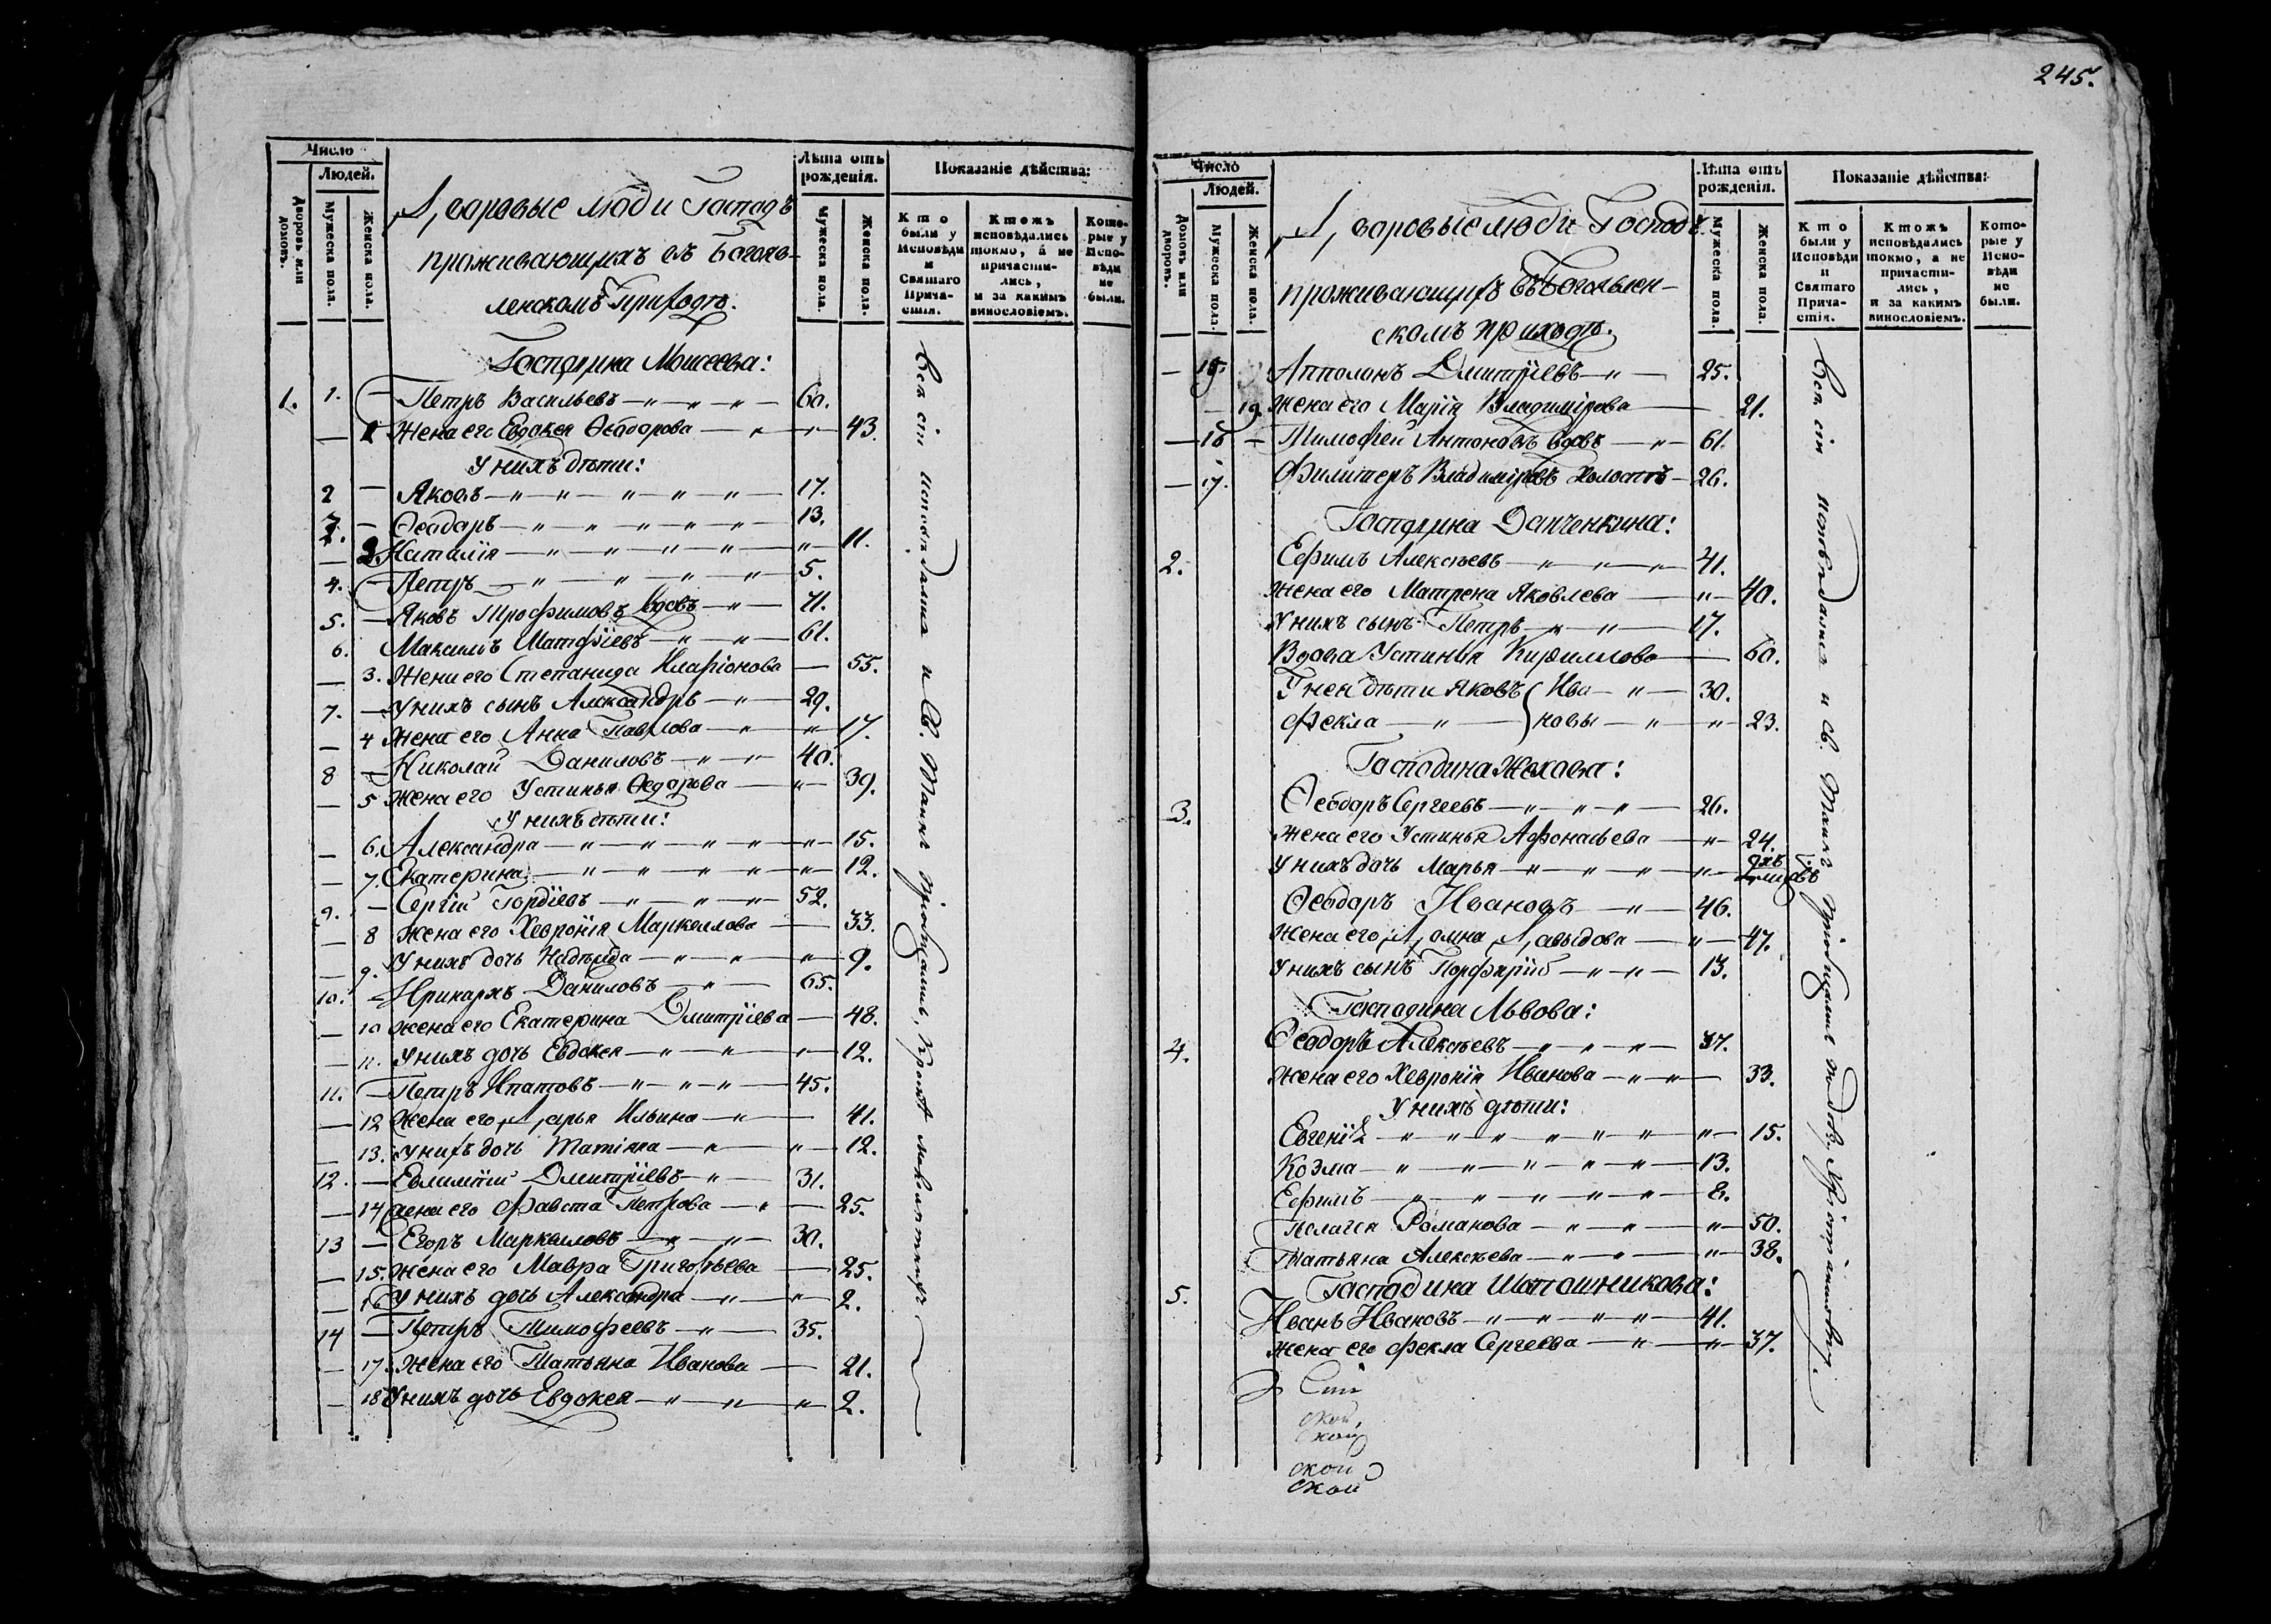 245.
Число
Людей.
Дворовъ или домовъ.
Мужеска пола.
Женска пола.
Лѣта отъ рожденія.
Мужеска пола.
Женска пола.
Показаніе дѣйства:
Кто были у Исповѣди и Святаго Причастія.
Ктожъ исповѣдались токмо, а не причастились, и за какимъ винословіемъ.
Которые у Исповѣди не были.
Дворовые люди Господъ
проживающихъ въ Богояв-
ленскомъ Приходѣ.
Господина Моисеева:
1. 1. — Петръ Васильевъ 60.
— 1 Жена его Евдокея Ѳеодорова 43.
У нихъ дѣти:
2 — Яковъ 17.
3. — Ѳеодоръ 13.
— 2. Наталія 11.
4. — Петръ 5.
5. — Яковъ Трофимовъ вдовъ 71.
6. Максимъ Матфіевъ 61.
— 3. Жена его Степанида Иларіонова 55.
7. — У нихъ сынъ Александръ 29.
— 4 Жена его Анна Павлова 17.
8 — Николай Даниловъ 40.
— 5 Жена его Устинья Ѳедорова 39.
У нихъ дѣти:
— 6. Александра 15.
— 7. Екатерина 12.
9. — Сергій Гордіевъ 52.
— 8 Жена его Хевронія Маркеллова 33.
— 9. У нихъ дочь Надежда 9.
10. — Иринархъ Даниловъ 65.
— 10 жена его Екатерина Дмитріева 48.
— 11. У нихъ дочь Евдокея 12.
11. — Петръ Ипатовъ 45.
— 12 Жена его Дарья Ильина 41.
— 13. У нихъ дочь Татіяна 12.
12. — Евлампій Дмитріевъ 31.
— 14 жена его Фавста Петрова 25.
13 — Егоръ Маркеловъ 30.
— 15. Жена его Мавра Григорьева 25.
— 16 У нихъ дочь Александра 2.
14 — Петръ Тимофеевъ 35.
— 17. Жена его Татьяна Иванова 21.
— 18 У нихъ дочь Евдокея 2.
Всѣ сіи исповѣдались и Св. Таинъ пріобщались, кромѣ малолѣтнихъ
Число
Людей.
Домовъ или дворовъ.
Мужеска пола.
Женска пола.
Лѣта отъ рожденія.
Мужеска пола.
Женска пола.
Показаніе дѣйства:
Кто были у Исповѣди и Святаго Причастія.
Ктожъ исповѣдались токмо, а не причастились, и за какимъ винословіемъ.
Которые у Исповѣди не были.
Дворовые люди Господъ
проживающихъ въ Богоявлен-
скомъ приходѣ.
— 15. Апполонъ Дмитріевъ 25.
— 19 жена его Марія Владимірова 21.
— 16 — Тимофей Антоновъ вдовъ 61.
— 17. Филитеръ Владиміровъ холостъ 26.
Господина Данченкина:
2. Ефимъ Алексѣевъ 41.
Жена его Матрена Яковлева 40.
У нихъ сынъ Петръ 17.
Вдова Устинья Кириллова 60.
У неи дѣти Яковъ Ива- 30.
Фекла новы 23.
Господина Жохова:
3. Ѳеодоръ Сергеевъ 26.
жена его Устинья Афонасьева 24.
У нихъ дочь Марья
Ѳеодоръ Ивановъ 46.
жена его Домна Давыдова 47.
У нихъ сынъ Порфирій 13.
Господина Львова:
4. Ѳеодоръ Алексѣевъ 37.
жена его Хевронія Иванова 33.
У нихъ дѣти:
Евгенія 15.
Козма 13.
Ефимъ 8.
Пелагея Романова 50.
Татьяна Алексѣева 38.
5. Господина Шапошникова:
Иванъ Ивановъ 41.
жена его Фекла Сергеева 37.
Сіи
ской,
ской
ской
ской
Всѣ сіи исповѣдались и Св. Таинъ пріобщались